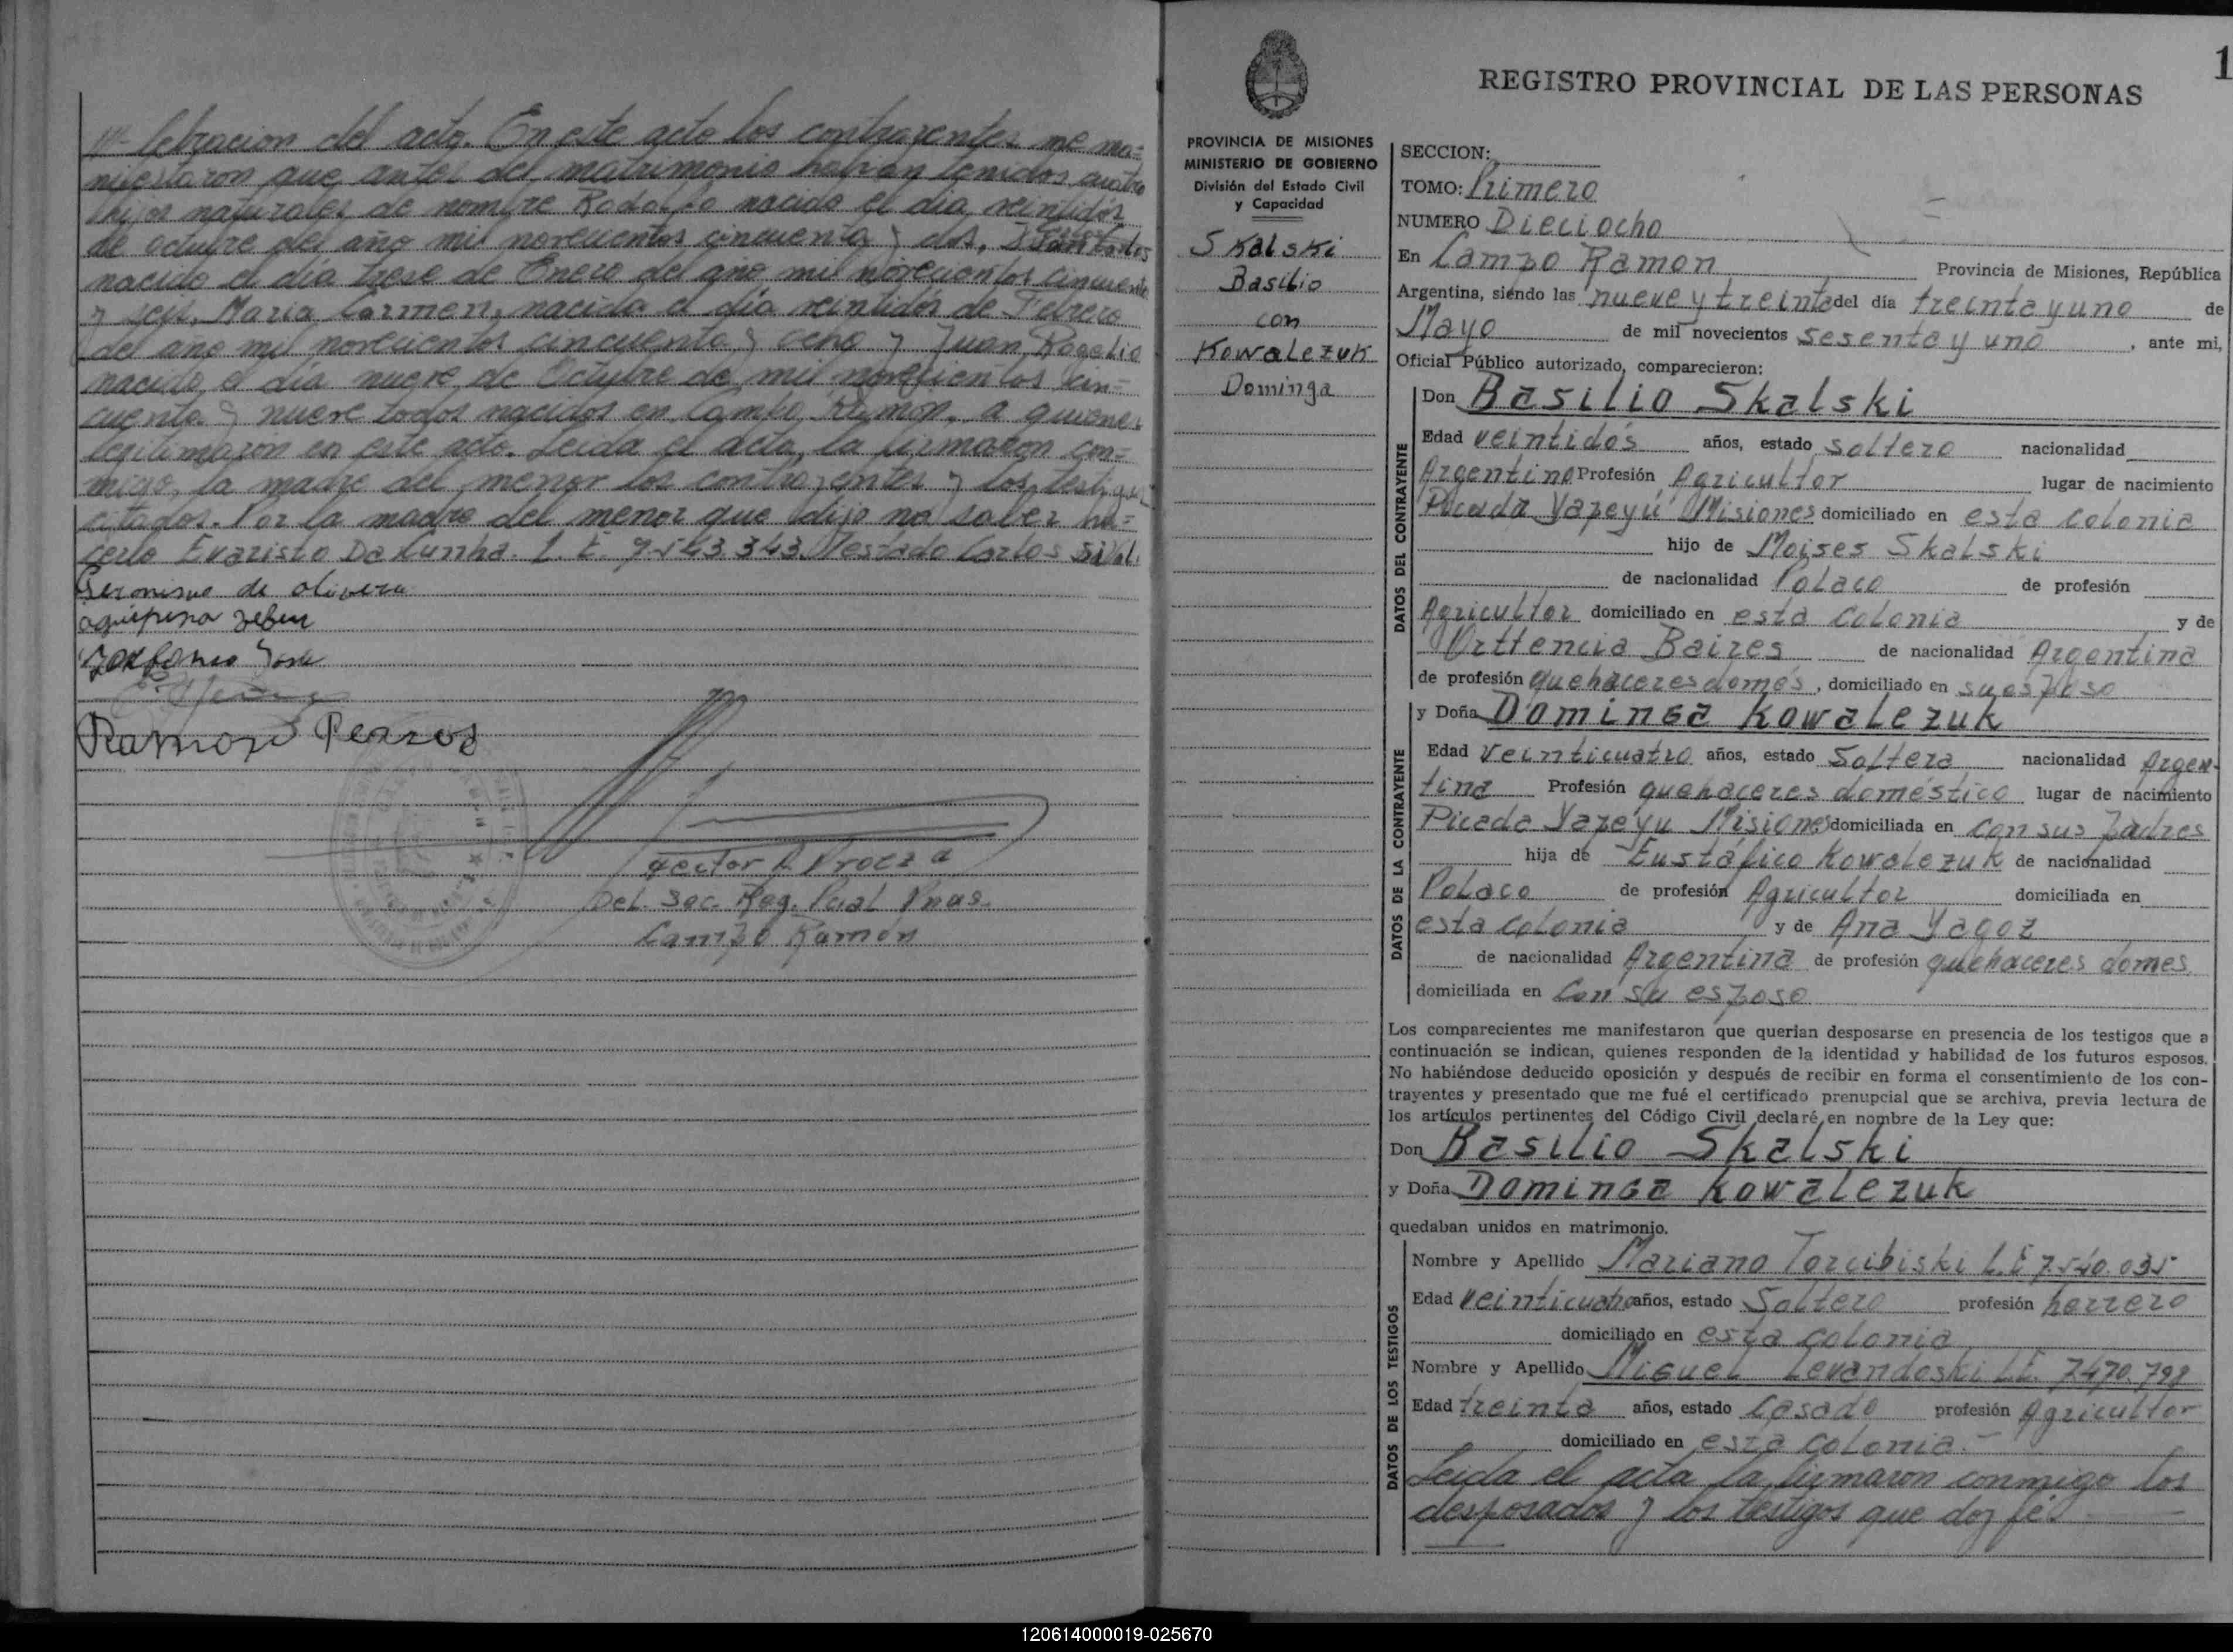 lebracion del acto. En este acto los contrayentes me ma=
nifestaron que antes del matrimonio habian tenidos cuatro
hijos naturales de nombre Rodolfo nacido el dia veintidós
de octubre del año mil novecientos cincuenta y dos,
nacido el día trese de Enero del año mil novecientos cincuenta
y seis, Maria Carmen, nacida el día veintidos de Febrero
del año mil novecientos cincuenta y ocho y Juan Rogelio
nacido el día nueve de Octubre de mil novecientos cin=
cuenta y nueve todos nacidos en Campo Ramon, a quienes
legitimaron en este acto. Leida el acta, la firmaron con=
migo, la madre del menor los contrayentes y los testigos
citados. Por la madre del menor que dijo no saber ha=
cerlo Evaristo Da Cunha. L. E. 7.543.343. Testado Carlos
Geronimo de olivera
Ramon
Hector
Del. Sec. Reg. Pcial Pnas.
Campo Ramon
1
REGISTRO PROVINCIAL DE LAS PERSONAS
PROVINCIA DE MISIONES
MINISTERIO DE GOBIERNO
División del Estado Civil
y Capacidad
Skalski
Basilio
con
Kowalezuk
Dominga
SECCION:
TOMO: Primero
NUMERO Dieciocho
En Campo Ramon Provincia de Misiones, República
Argentina, siendo las nueve y treinta del día treinta y uno de
Mayo de mil novecientos sesenta y uno, ante mi,
Oficial Público autorizado, comparecieron:
DATOS DEL CONTRAYENTE
Don Basilio Skalski
Edad veintidos años, estado soltero nacionalidad
Argentino Profesión Agricultor lugar de nacimiento
Picada Yapeyú Misiones domiciliado en esta colonia
hijo de Moises Skalski
de nacionalidad Polaco de profesión
Agricultor domiciliado en esta colonia y de
Orttencia Baires de nacionalidad Argentina
de profesión quehaceres domés, domiciliado en su esposo
DATOS DE LA CONTRAYENTE
y Doña Dominga Kowalezuk
Edad veinticuatro años, estado Soltera nacionalidad Argen-
tina Profesión quehaceres doméstico lugar de nacimiento
Picada Yapeyu Misiones domiciliada en con sus padres
hija de Eustáfico Kowalezuk de nacionalidad
Polaco de profesión Agricultor domiciliada en
esta colonia y de Ana Yagoz
de nacionalidad Argentina de profesión quehaceres domes.
domiciliada en Con su esposo
Los comparecientes me manifestaron que querian desposarse en presencia de los testigos que a
continuación se indican, quienes responden de la identidad y habilidad de los futuros esposos.
No habiéndose deducido oposición y después de recibir en forma el consentimiento de los con-
trayentes y presentado que me fué el certificado prenupcial que se archiva, previa lectura de
los artículos pertinentes del Código Civil declaré en nombre de la Ley que:
Don Basilio Skalski
y Doña Dominga Kowalezuk
quedaban unidos en matrimonio.
DATOS DE LOS TESTIGOS
Nombre y Apellido Mariano Torcibiski L.E 7.540.035
Edad veinticuatro años, estado Soltero profesión herrero
domiciliado en esta colonia
Nombre y Apellido Miguel Levandoski L.E. 7.470.798
Edad treinta años, estado Casado profesión Agricultor
domiciliado en esta colonia.-
Leida el acta la firmaron conmigo los
desposados y los testigos que doy fé.
120614000019-025670